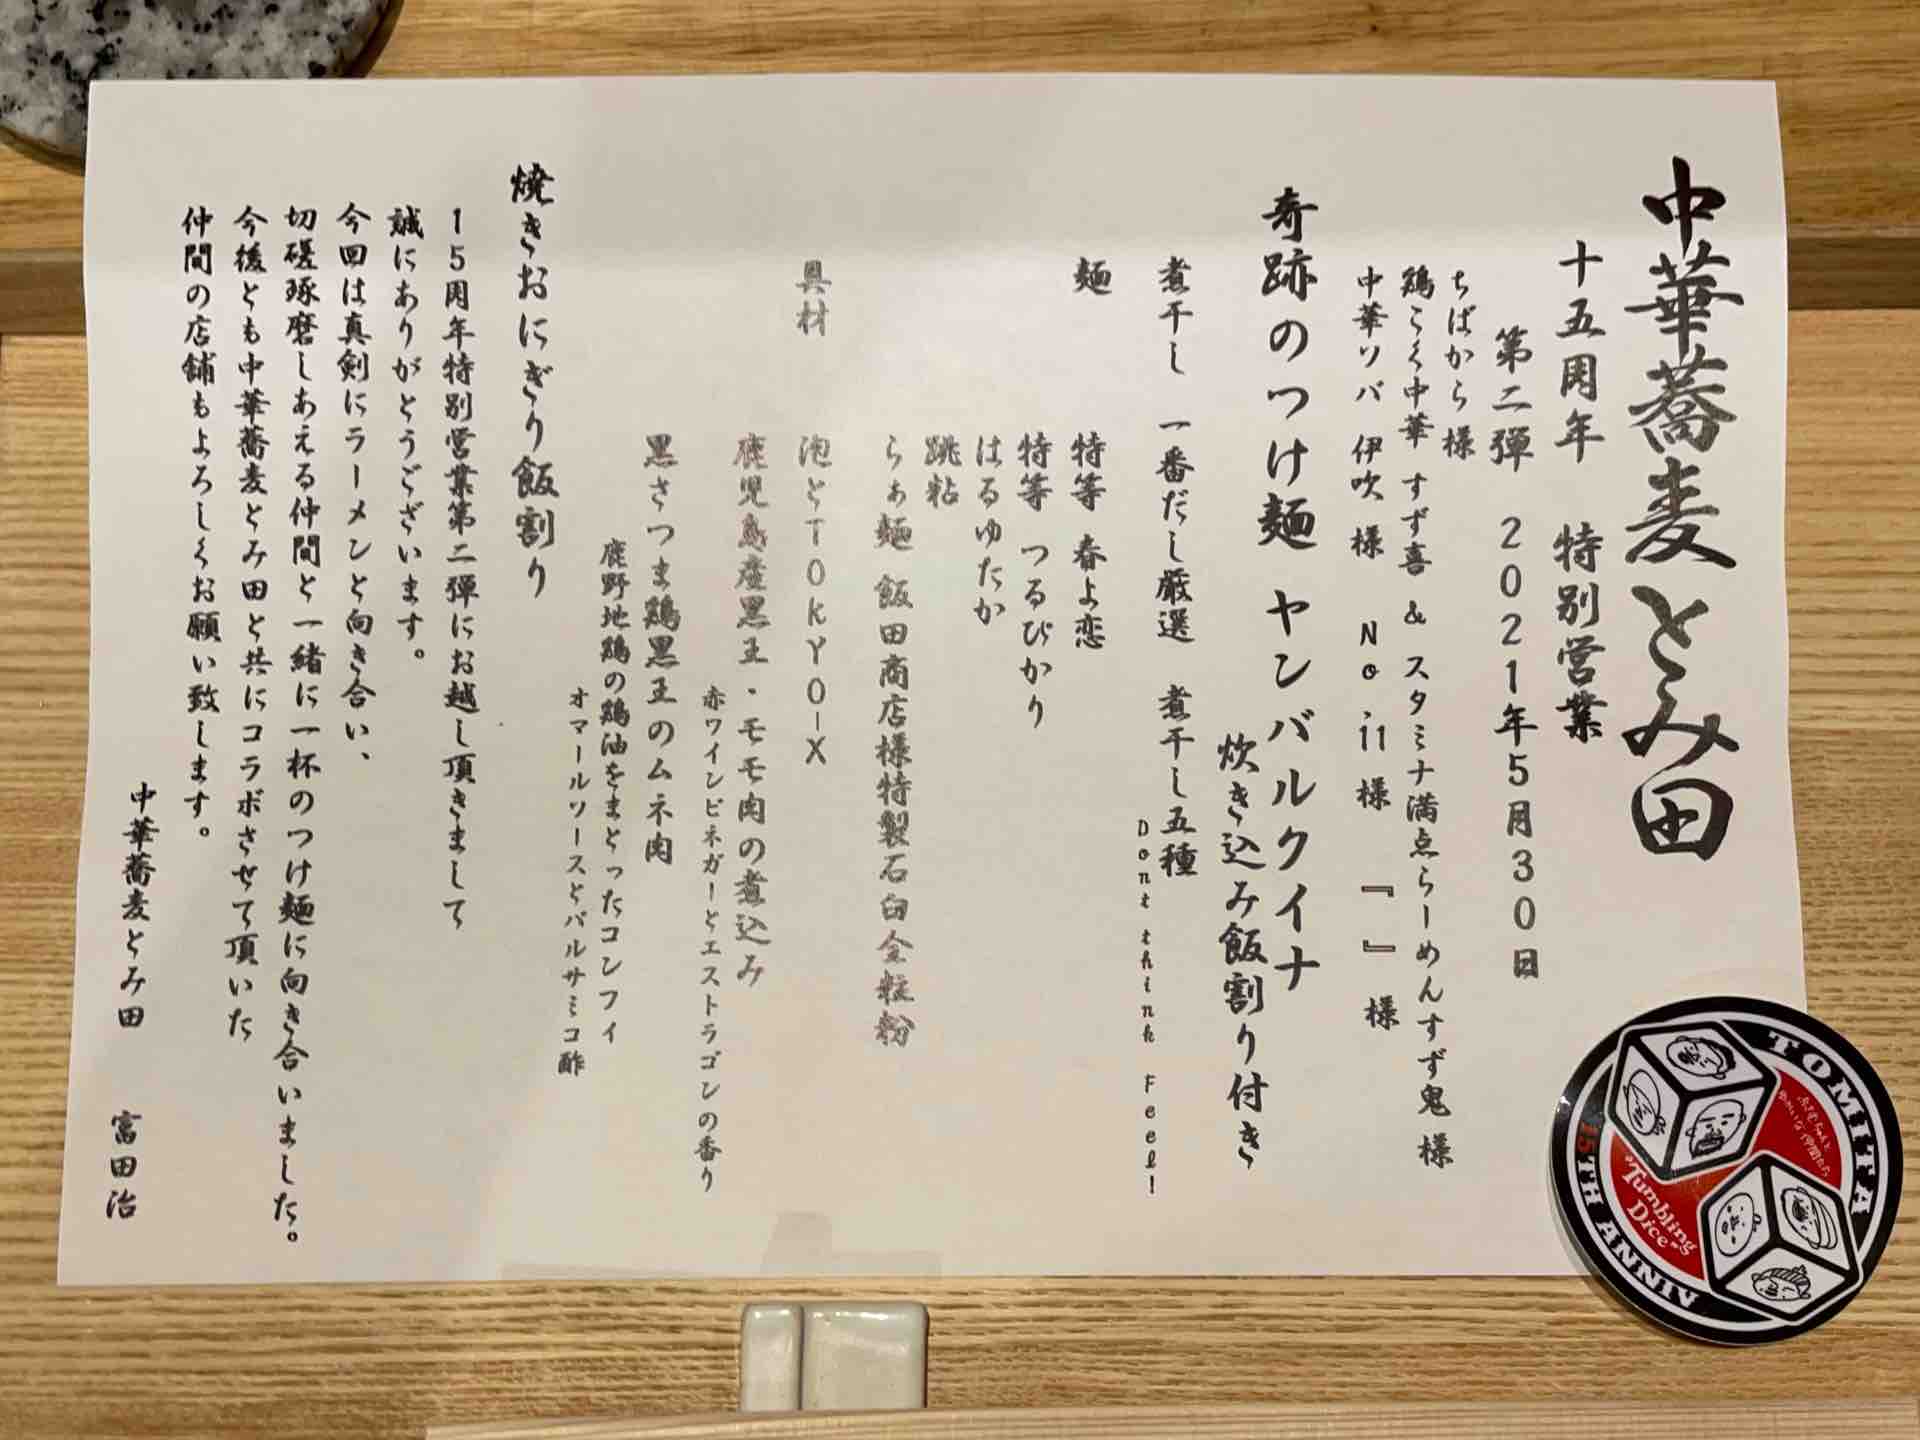 中華蕎麦とみ田
十五周年 特別営業
第二弾 2021年5月30日
ちばから様
鶏こく中華 すず喜 & スタミナ満点らーめんすず鬼 様
中華ソバ 伊吹 様 No.11様 『 』様
奇跡のつけ麺 ヤンバルクイナ
炊き込み飯割り付き
煮干し 一番だし厳選 煮干し五種
Dont think Feel!
麺 特等 春よ恋
特等 つるぴかり
はるゆたか
跳粘
らぁ麺 飯田商店様特製石臼全粒粉
具材 泡とTOKYO-X
鹿児島産黒王・モモ肉の煮込み
赤ワインビネガーとエストラゴンの香り
黒さつま鶏黒王のムネ肉
鹿野地鶏の鶏油をまとったコンフィ
オマールソースとバルサミコ酢
焼きおにぎり飯割り
15周年特別営業第二弾にお越し頂きまして
誠にありがとうございます。
今回は真剣にラーメンと向き合い、
切磋琢磨しあえる仲間と一緒に一杯のつけ麺に向き合いました。
今後とも中華蕎麦とみ田と共にコラボさせて頂いた
仲間の店舗もよろしくお願い致します。
中華蕎麦とみ田 富田治
TOMITA
15TH ANNIV
"Tumbling
Dice"